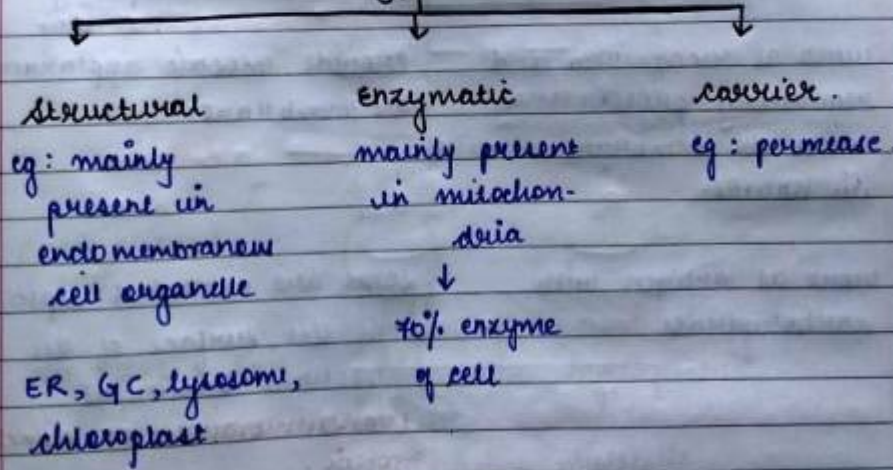 Structural
eg: mainly
present in
endomembranous
cell organelle
ER, GC, lysosome,
chloroplast
Enzymatic
mainly present
in mitochon-
dria
↓
70% enzyme
of cell
carrier.
eg: permease